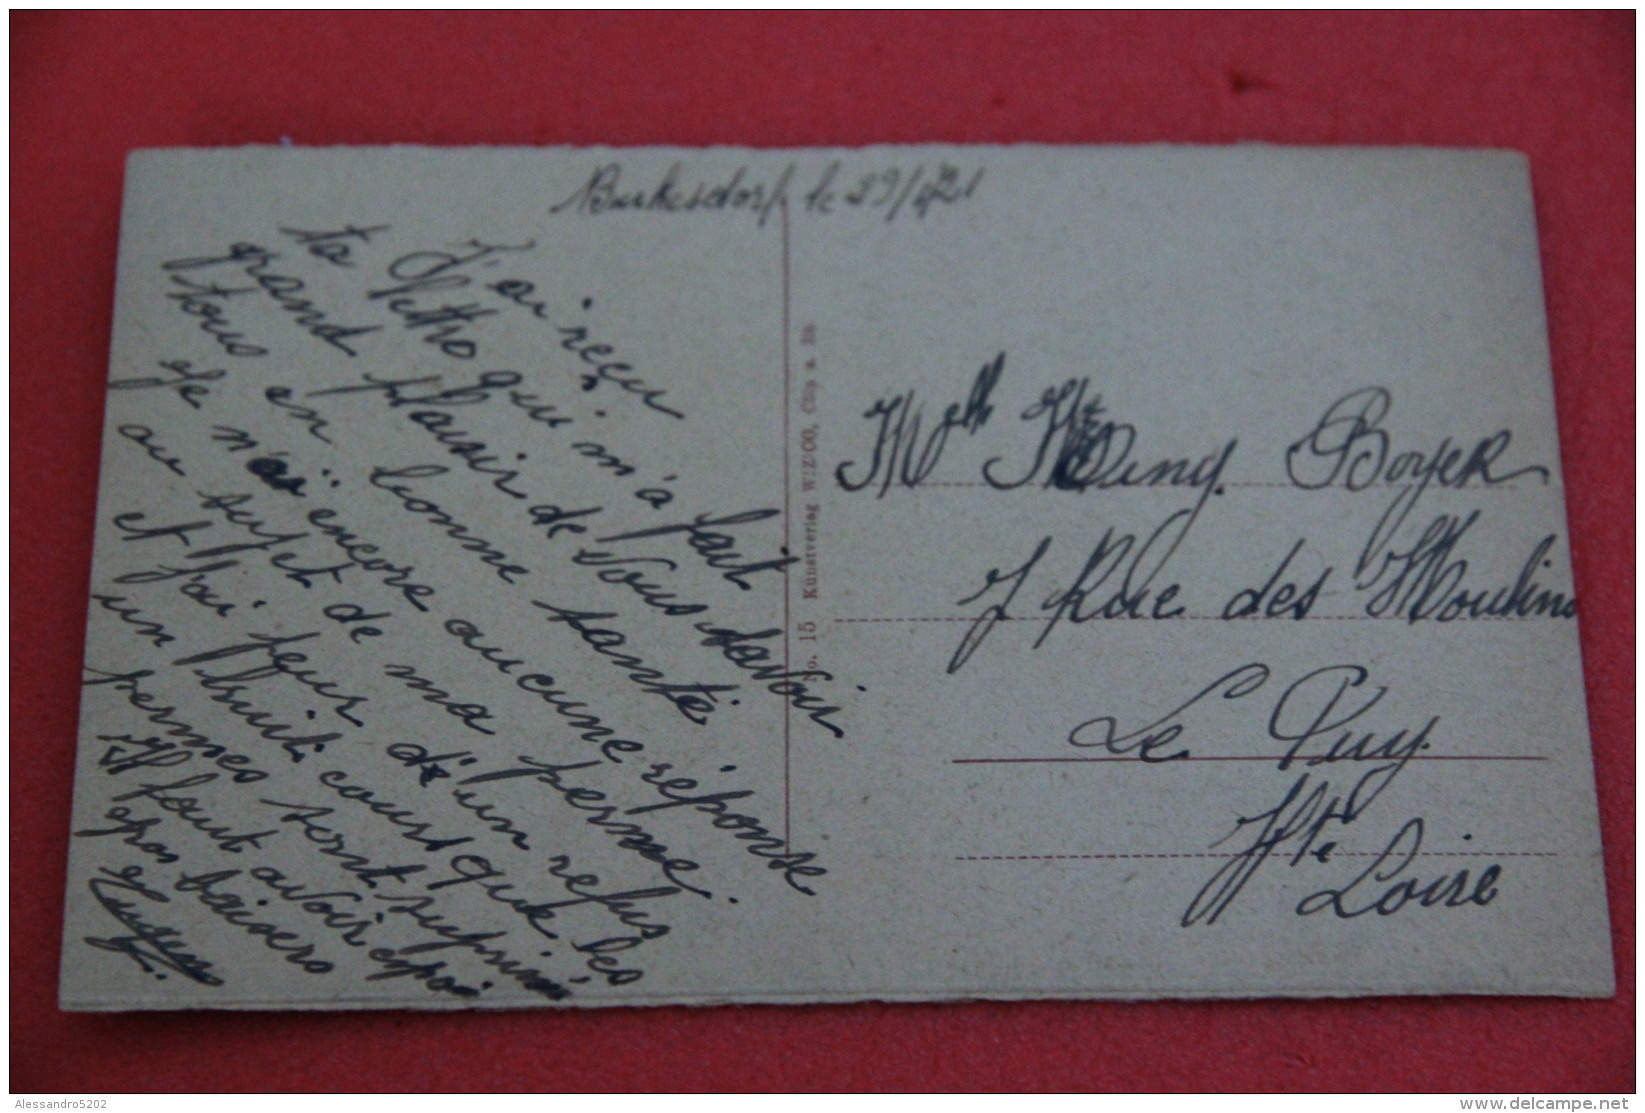 le 29/4/21
J'ai reçu
ta lettre qui m'a fait
grand plaisir de vous savoir
tous en bonne santé
Je n'ai encore aucune réponse
au sujet de ma perme.
et j'ai peur d'un refus
un bruit court que les
permes sernt suprimé
Il faut avoir espoir
gros baisers
Eugène
No. 15 Kunstverlag W.Z./CO, Cöp a. Rh.
Melle Boyer
7 Rue des Moulins
Le Puy
Hte
Loire
Alessandro5202
www.delcampe.net